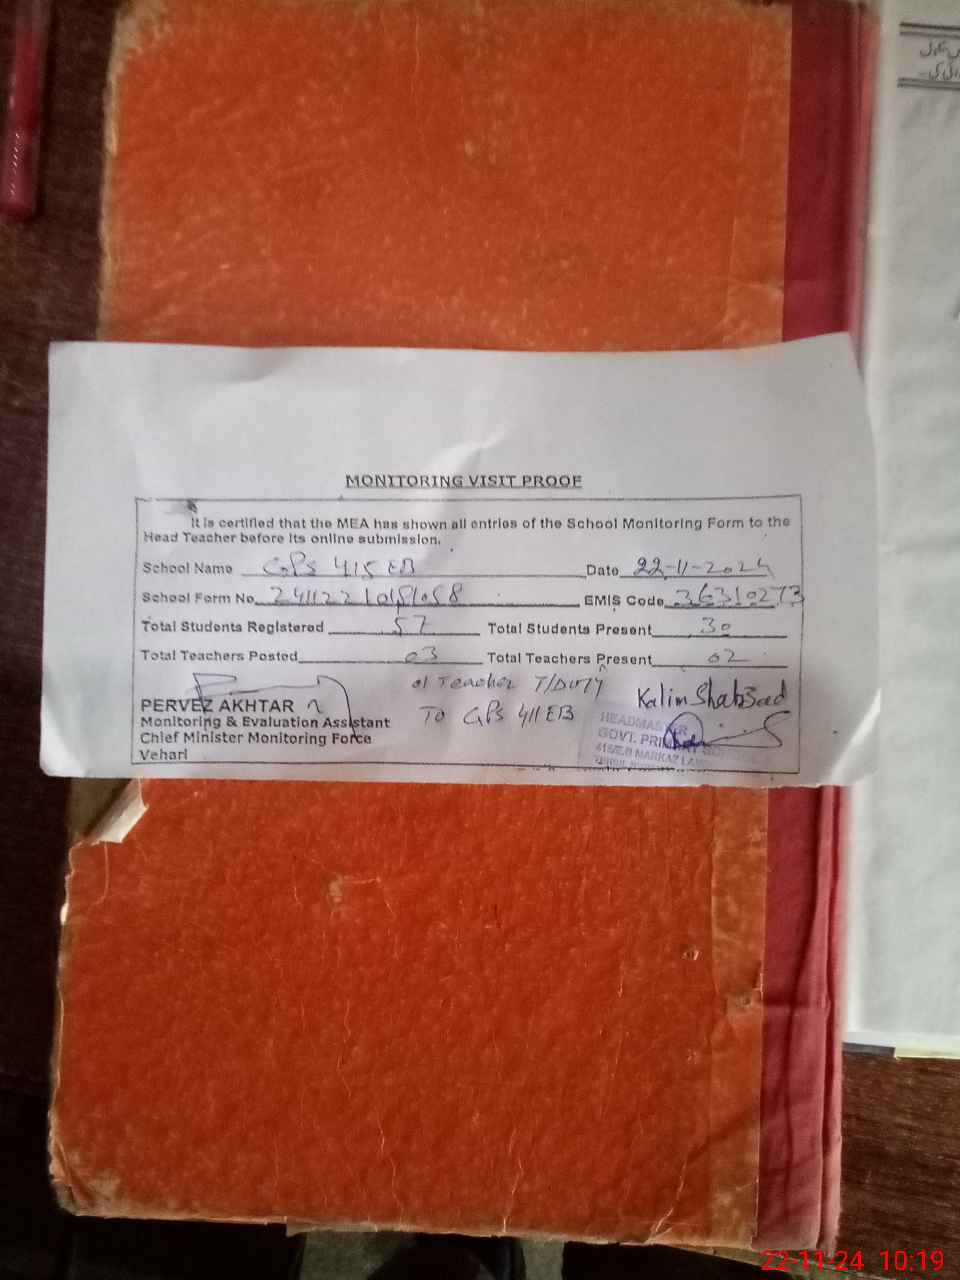 MONITORING VISIT PROOF
It is certified that the MEA has shown all entries of the School Monitoring Form to the
Head Teacher before its online submission.
School Name GPS 415 EB Date 22-11-2024
School Form No. EMIS Code 36310273
Total Students Registered 57 Total Students Present 30
Total Teachers Posted 03 Total Teachers Present 02
01 Teacher T/Duty
To GPS 411 EB
Kalim Shahzad
PERVEZ AKHTAR
Monitoring & Evaluation Assistant
Chief Minister Monitoring Force
Vehari
HEADMASTER
GOVT. PRIMARY
415/E.B MARKAZ
22-11-24 10:19